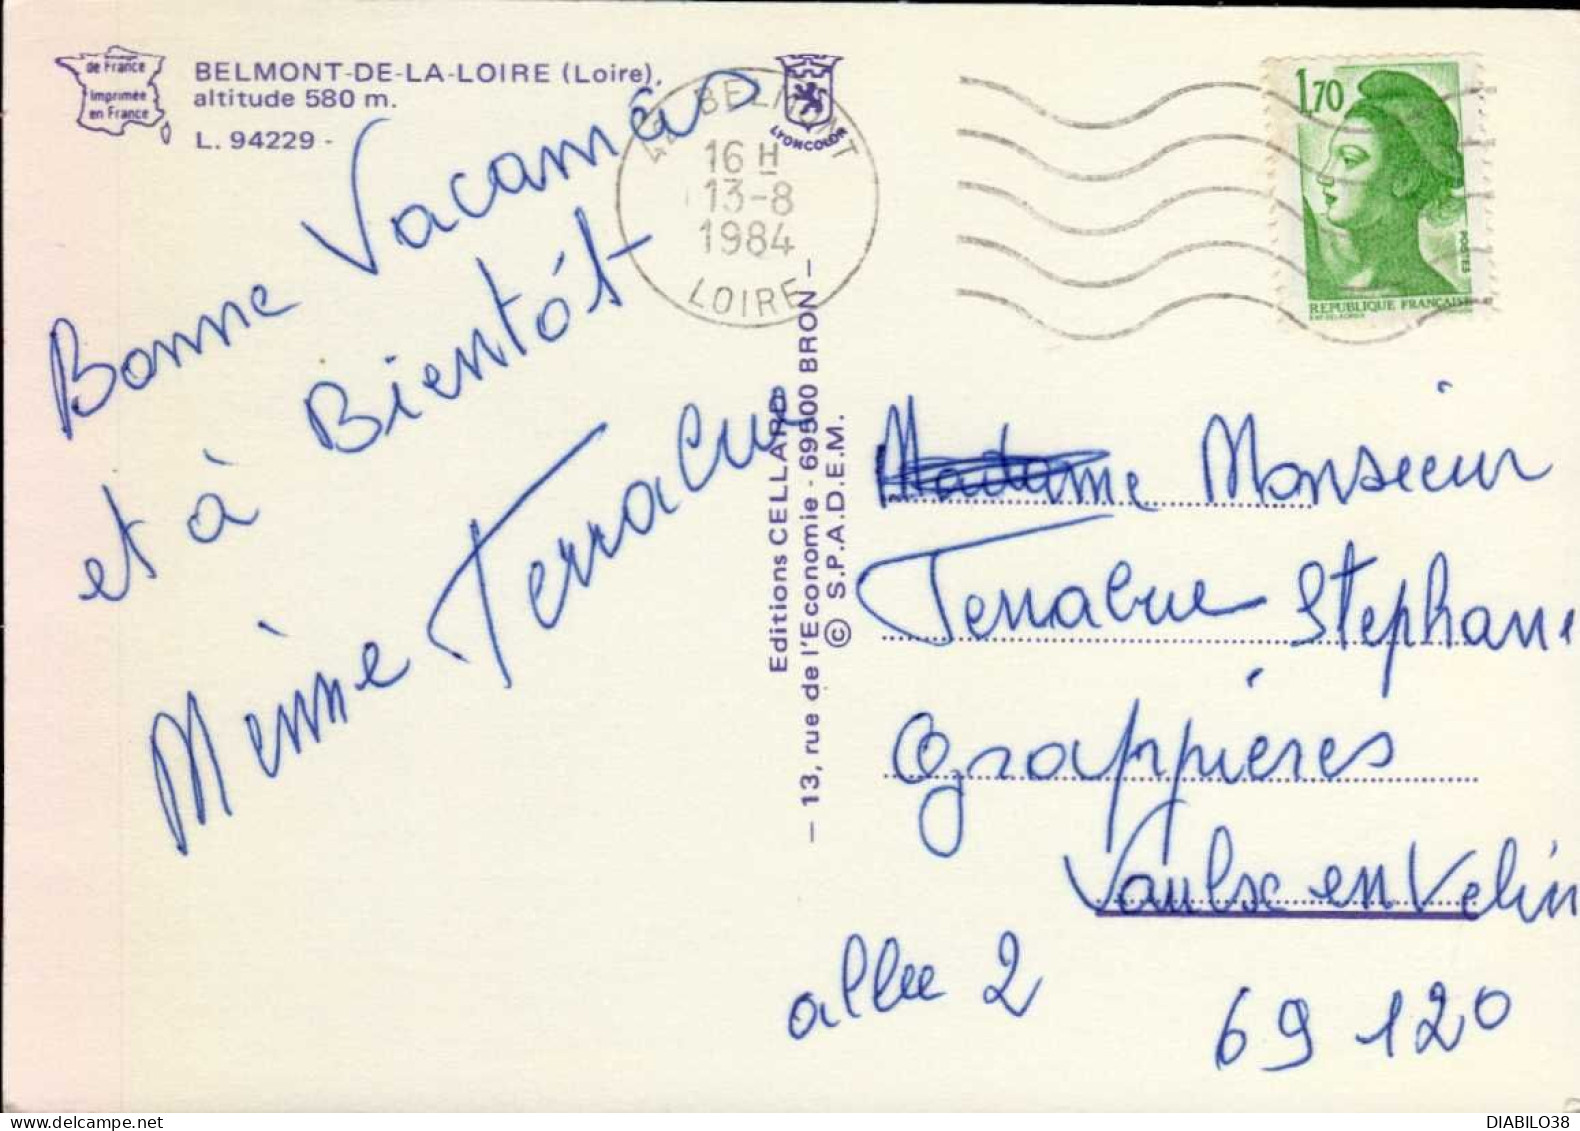 de France
Imprimée
en France
BELMONT-DE-LA-LOIRE (Loire),
altitude 580 m.
L. 94229 -
LYONCOLOR
42 BELMONT
16 H
13-8
1984
LOIRE
1,70
POSTES
REPUBLIQUE FRANÇAISE
Bonne Vacances
et à Bientôt
Terracue
Editions CELLARD
— 13, rue de l'Economie - 69500 BRON —
© S.P.A.D.E.M.
Madame Monsieur
Terracue Stephane
Grappières
Vaulx en Velin
allee 2
69 120
DIABILO38